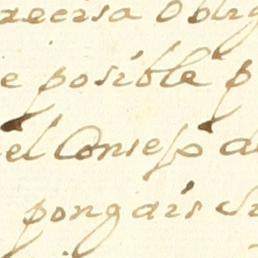 precisa oblig
e posible p
el Consejo de
pongais su